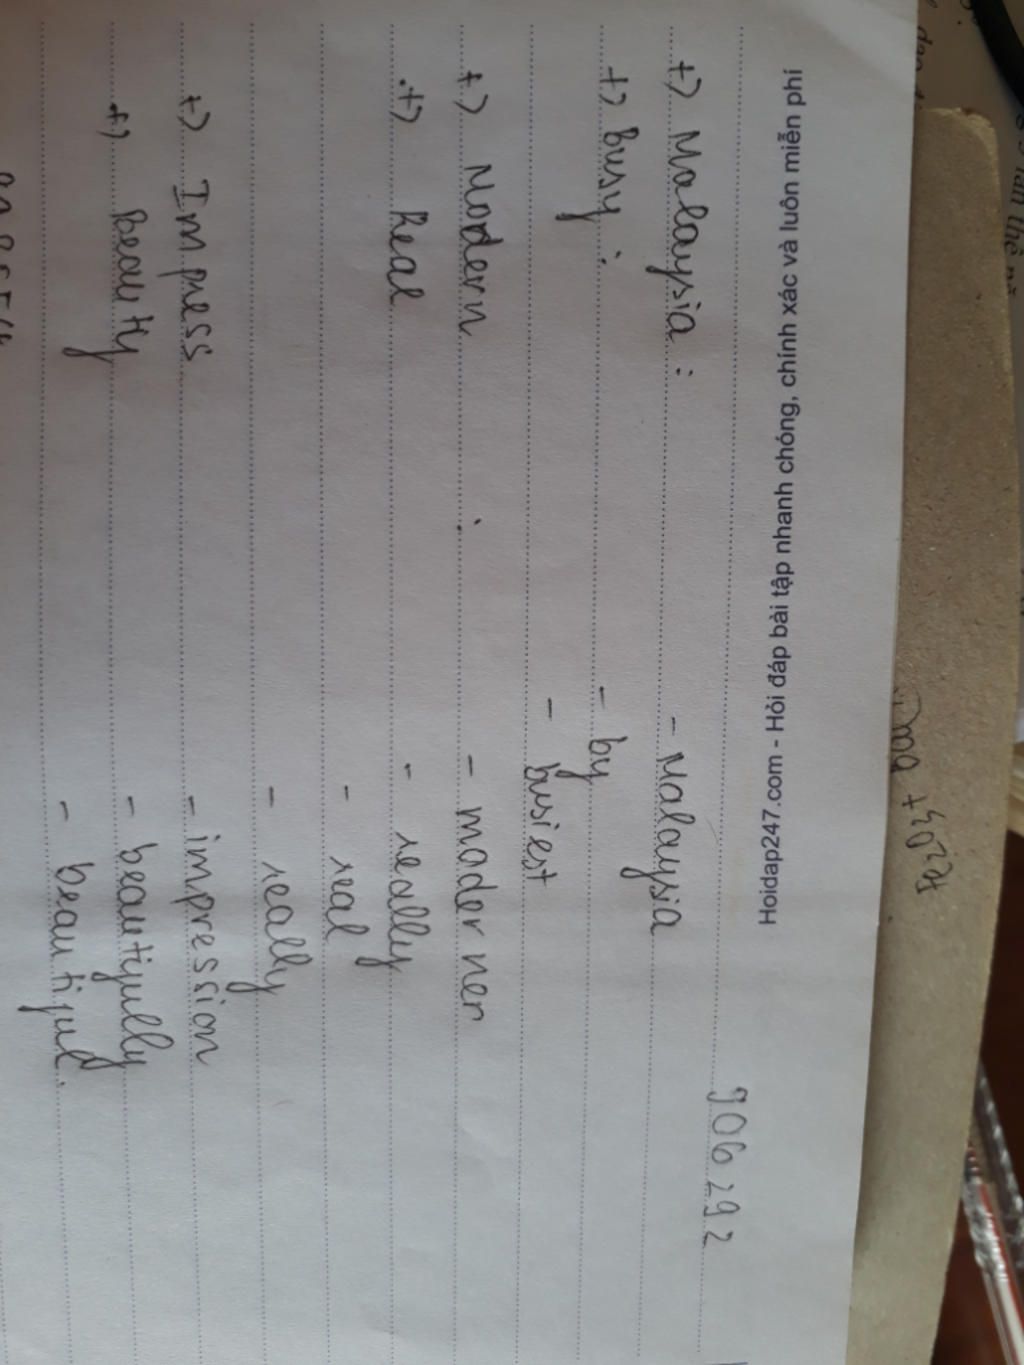 Hoidap247.com - Hỏi đáp bài tập nhanh chóng, chính xác và luôn miễn phí
906 292
t) Malaysia : - Malaysia
t) Busy : - by
- busiest
t) Modern : - mader ner
t) Real - really
- real
- really
t) Impress - impression
t) Beauty - beautifully
- beautiful.